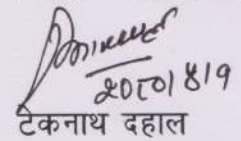 २०८०।४।९
टेकनाथ दहाल